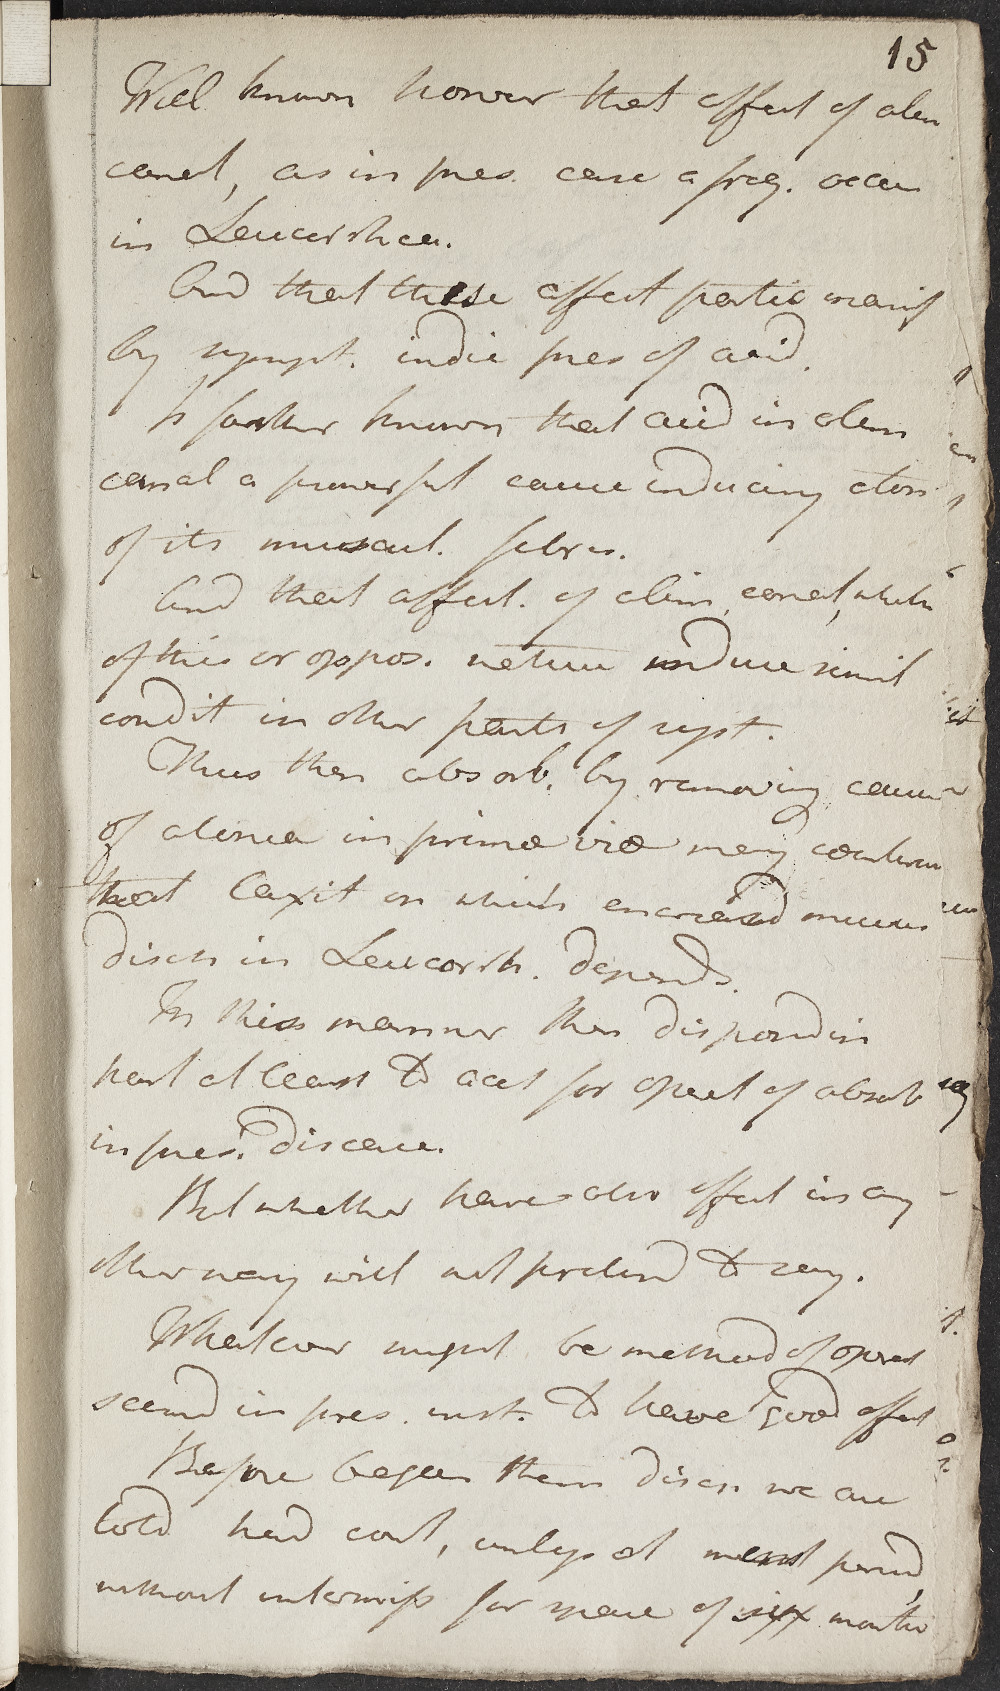 15
Well known howevr that affect of alim
canal, as in pres. case a freq. occur
in Leucorrhea.
And that these affect partic manif
by sympt. indic pres of acid.
Is farther known that acid in alim
canal a powerful cause inducing aton
of its muscul. fibres.
And that affect. of alim. canal, wheth
of this or oppos. nature induce simil
condit in other parts of syst.
Thus then absorb. by removing cause
of atonia in primæ viæ may
that laxit on which encreased mucus
disch in Leucorrh. depends.
In this manner then disposed in
part at least to acct for operat of absorb
in pres. disease.
But whether have also effect in any
other way will not pretend to say.
Whatever might be method of operat
seemd in pres. inst. to have good effect
Before begun them disch we are
told had cont, unless at menst period,
without intermiss for space of six months